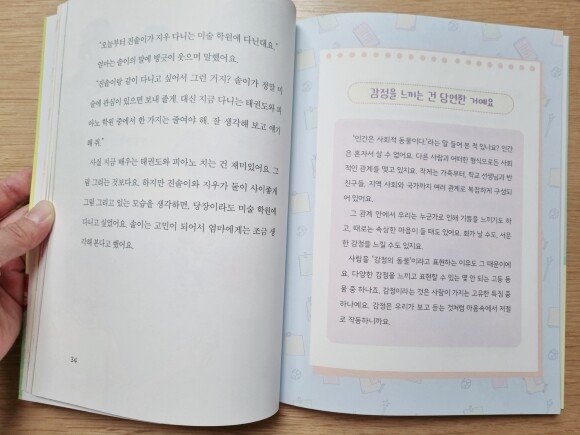 "오늘부터 진솔이가 지우 다니는 미술 학원에 다닌대요."
엄마는 솔이의 말에 빙긋이 웃으며 말했어요.
"진솔이랑 같이 다니고 싶어서 그런 거지? 솔이가 정말 미
술에 관심이 있으면 보내 줄게. 대신 지금 다니는 태권도와 피
아노 학원 중에서 한 가지는 줄여야 해. 잘 생각해 보고 얘기
해 줘."
사실 지금 배우는 태권도와 피아노 치는 건 재미있어요. 그
림 그리는 것보다요. 하지만 진솔이와 지우가 둘이 사이좋게
그림 그리고 있는 모습을 생각하면, 당장이라도 미술 학원에
다니고 싶었어요. 솔이는 고민이 되어서 엄마에게는 조금 생
각해 본다고 했어요.
34
감정을 느끼는 건 당연한 거예요
"인간은 사회적 동물이다."라는 말 들어 본 적 있나요? 인간
은 혼자서 살 수 없어요. 다른 사람과 어떠한 형식으로든 사회
적인 관계를 맺고 있지요. 작게는 가족부터, 학교 선생님과 반
친구들, 지역 사회와 국가까지 여러 관계로 복잡하게 구성되
어 있어요.
그 관계 안에서 우리는 누군가로 인해 기쁨을 느끼기도 하
고, 때로는 속상한 마음이 들 때도 있어요. 화가 날 수도, 서운
한 감정을 느낄 수도 있지요.
사람을 "감정의 동물"이라고 표현하는 이유도 그 때문이에
요. 다양한 감정을 느끼고 표현할 수 있는 몇 안 되는 고등 동
물 중 하나죠. 감정이라는 것은 사람이 가지는 고유한 특징 중
하나예요. 감정은 우리가 보고 듣는 것처럼 마음속에서 저절
로 작동하니까요.